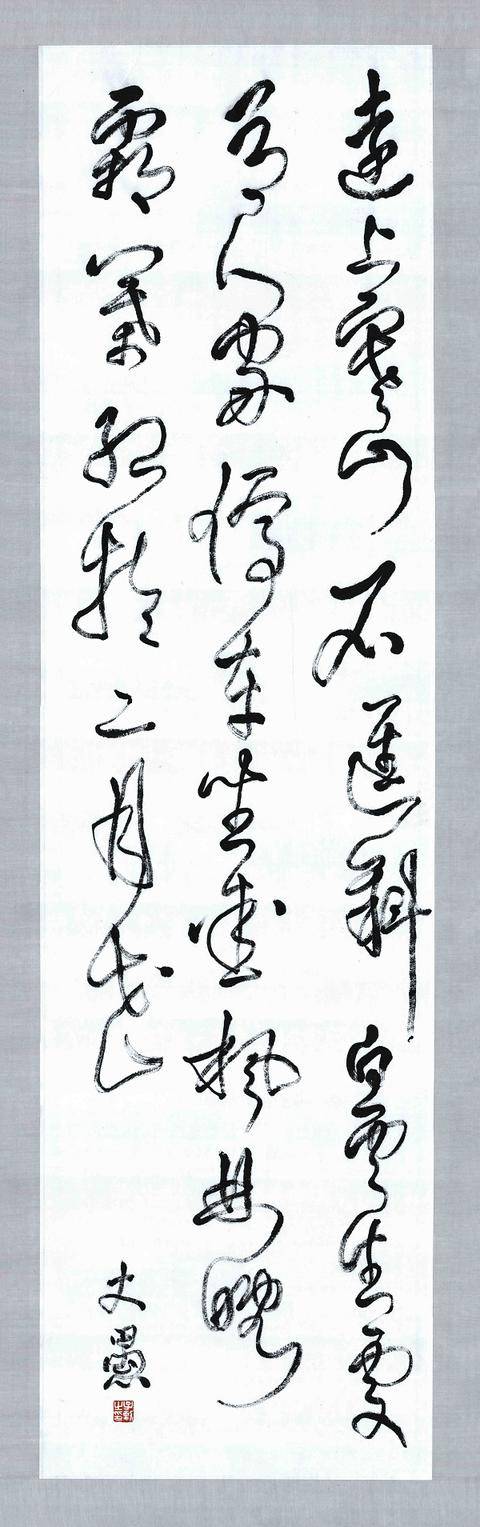 遠上寒山石徑斜白雲生處
有人家停車坐愛楓林晚
霜葉紅於二月花
大愚